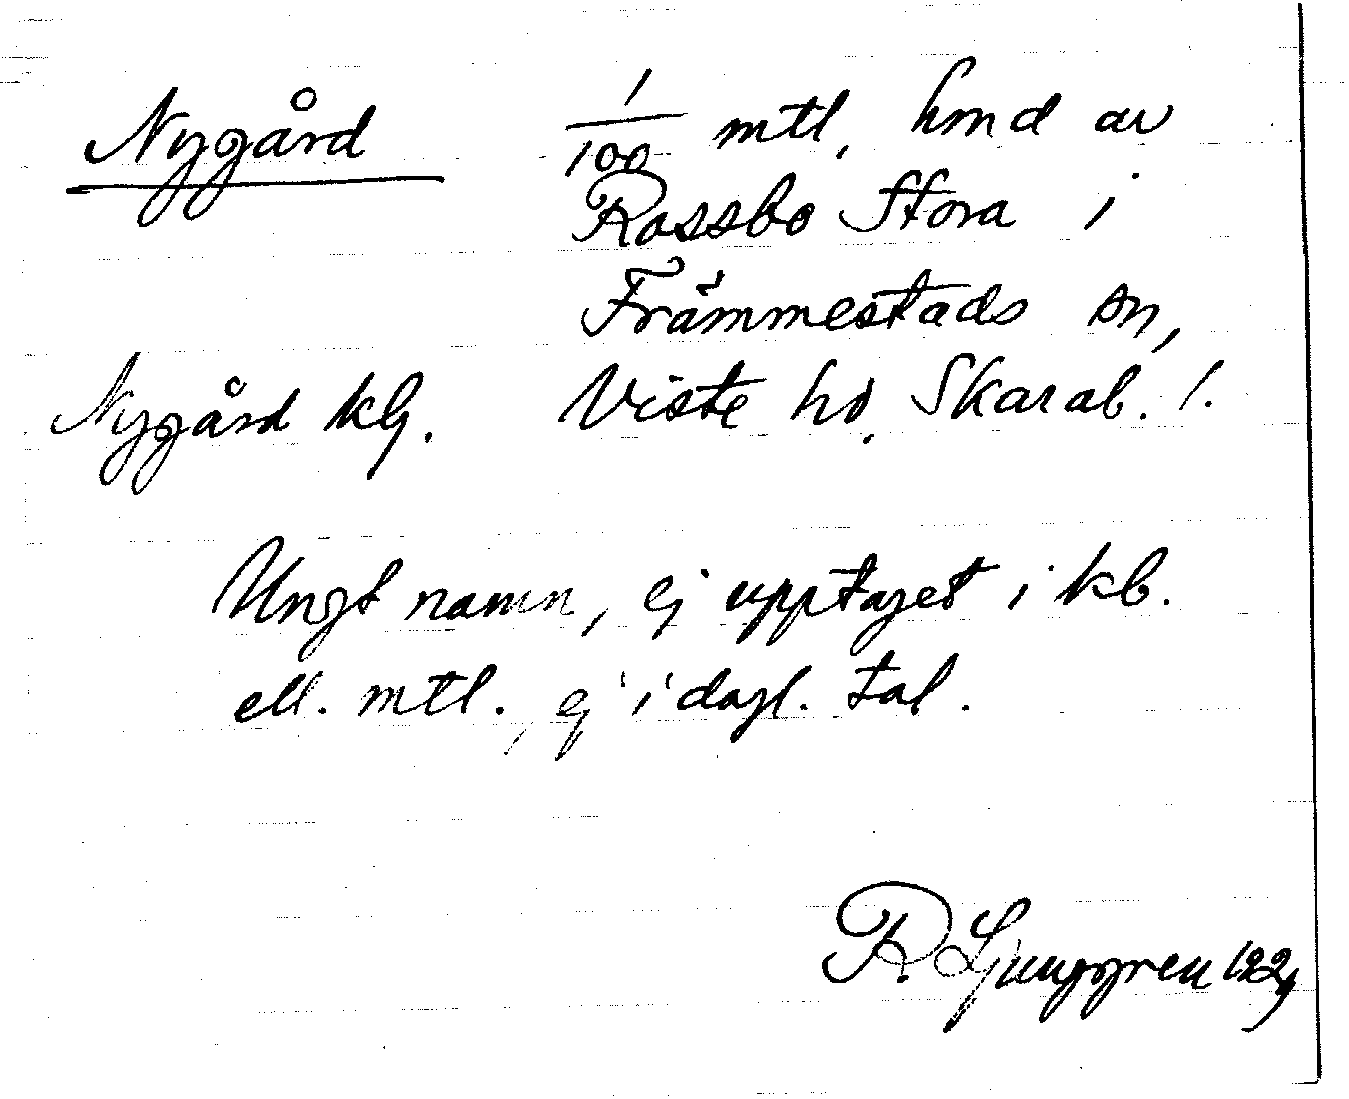 Nygård 1/100 mtl, hmd av
Rassbo Stora i
Främmestads sn,
Nygård klg. Viste hd. Skarab. l.
Ungt namn, ej upptaget i kb.
ell. mtl., ej i dagl. tal.
R Ljunggren